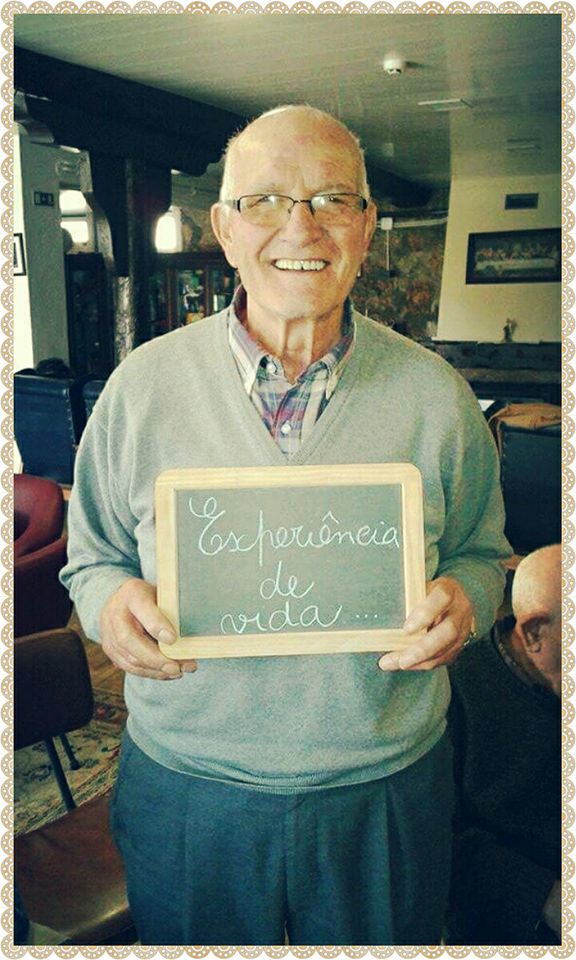 Experiência
de
vida...